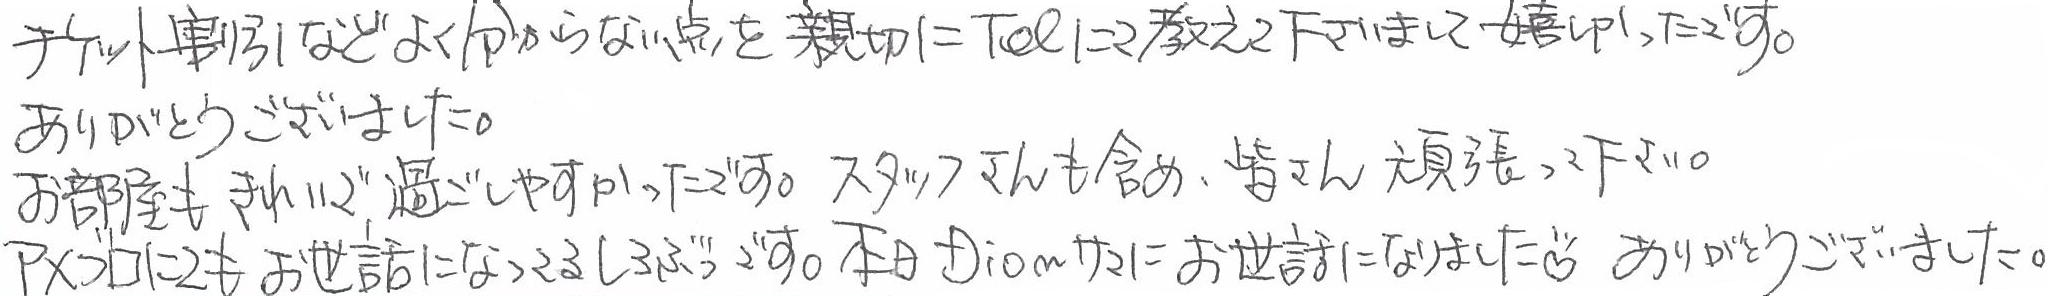 チケット割引などよく分からない点を親切にTelにて教えて下さいまして嬉しかったです。
ありがとうございました。
お部屋もきれいで過ごしやすかったです。スタッフさんも含め、皆さん頑張って下さい。
アメブロにてもお世話になってるしろぶつです。本日Dionサマにお世話になりました ありがとうございました。